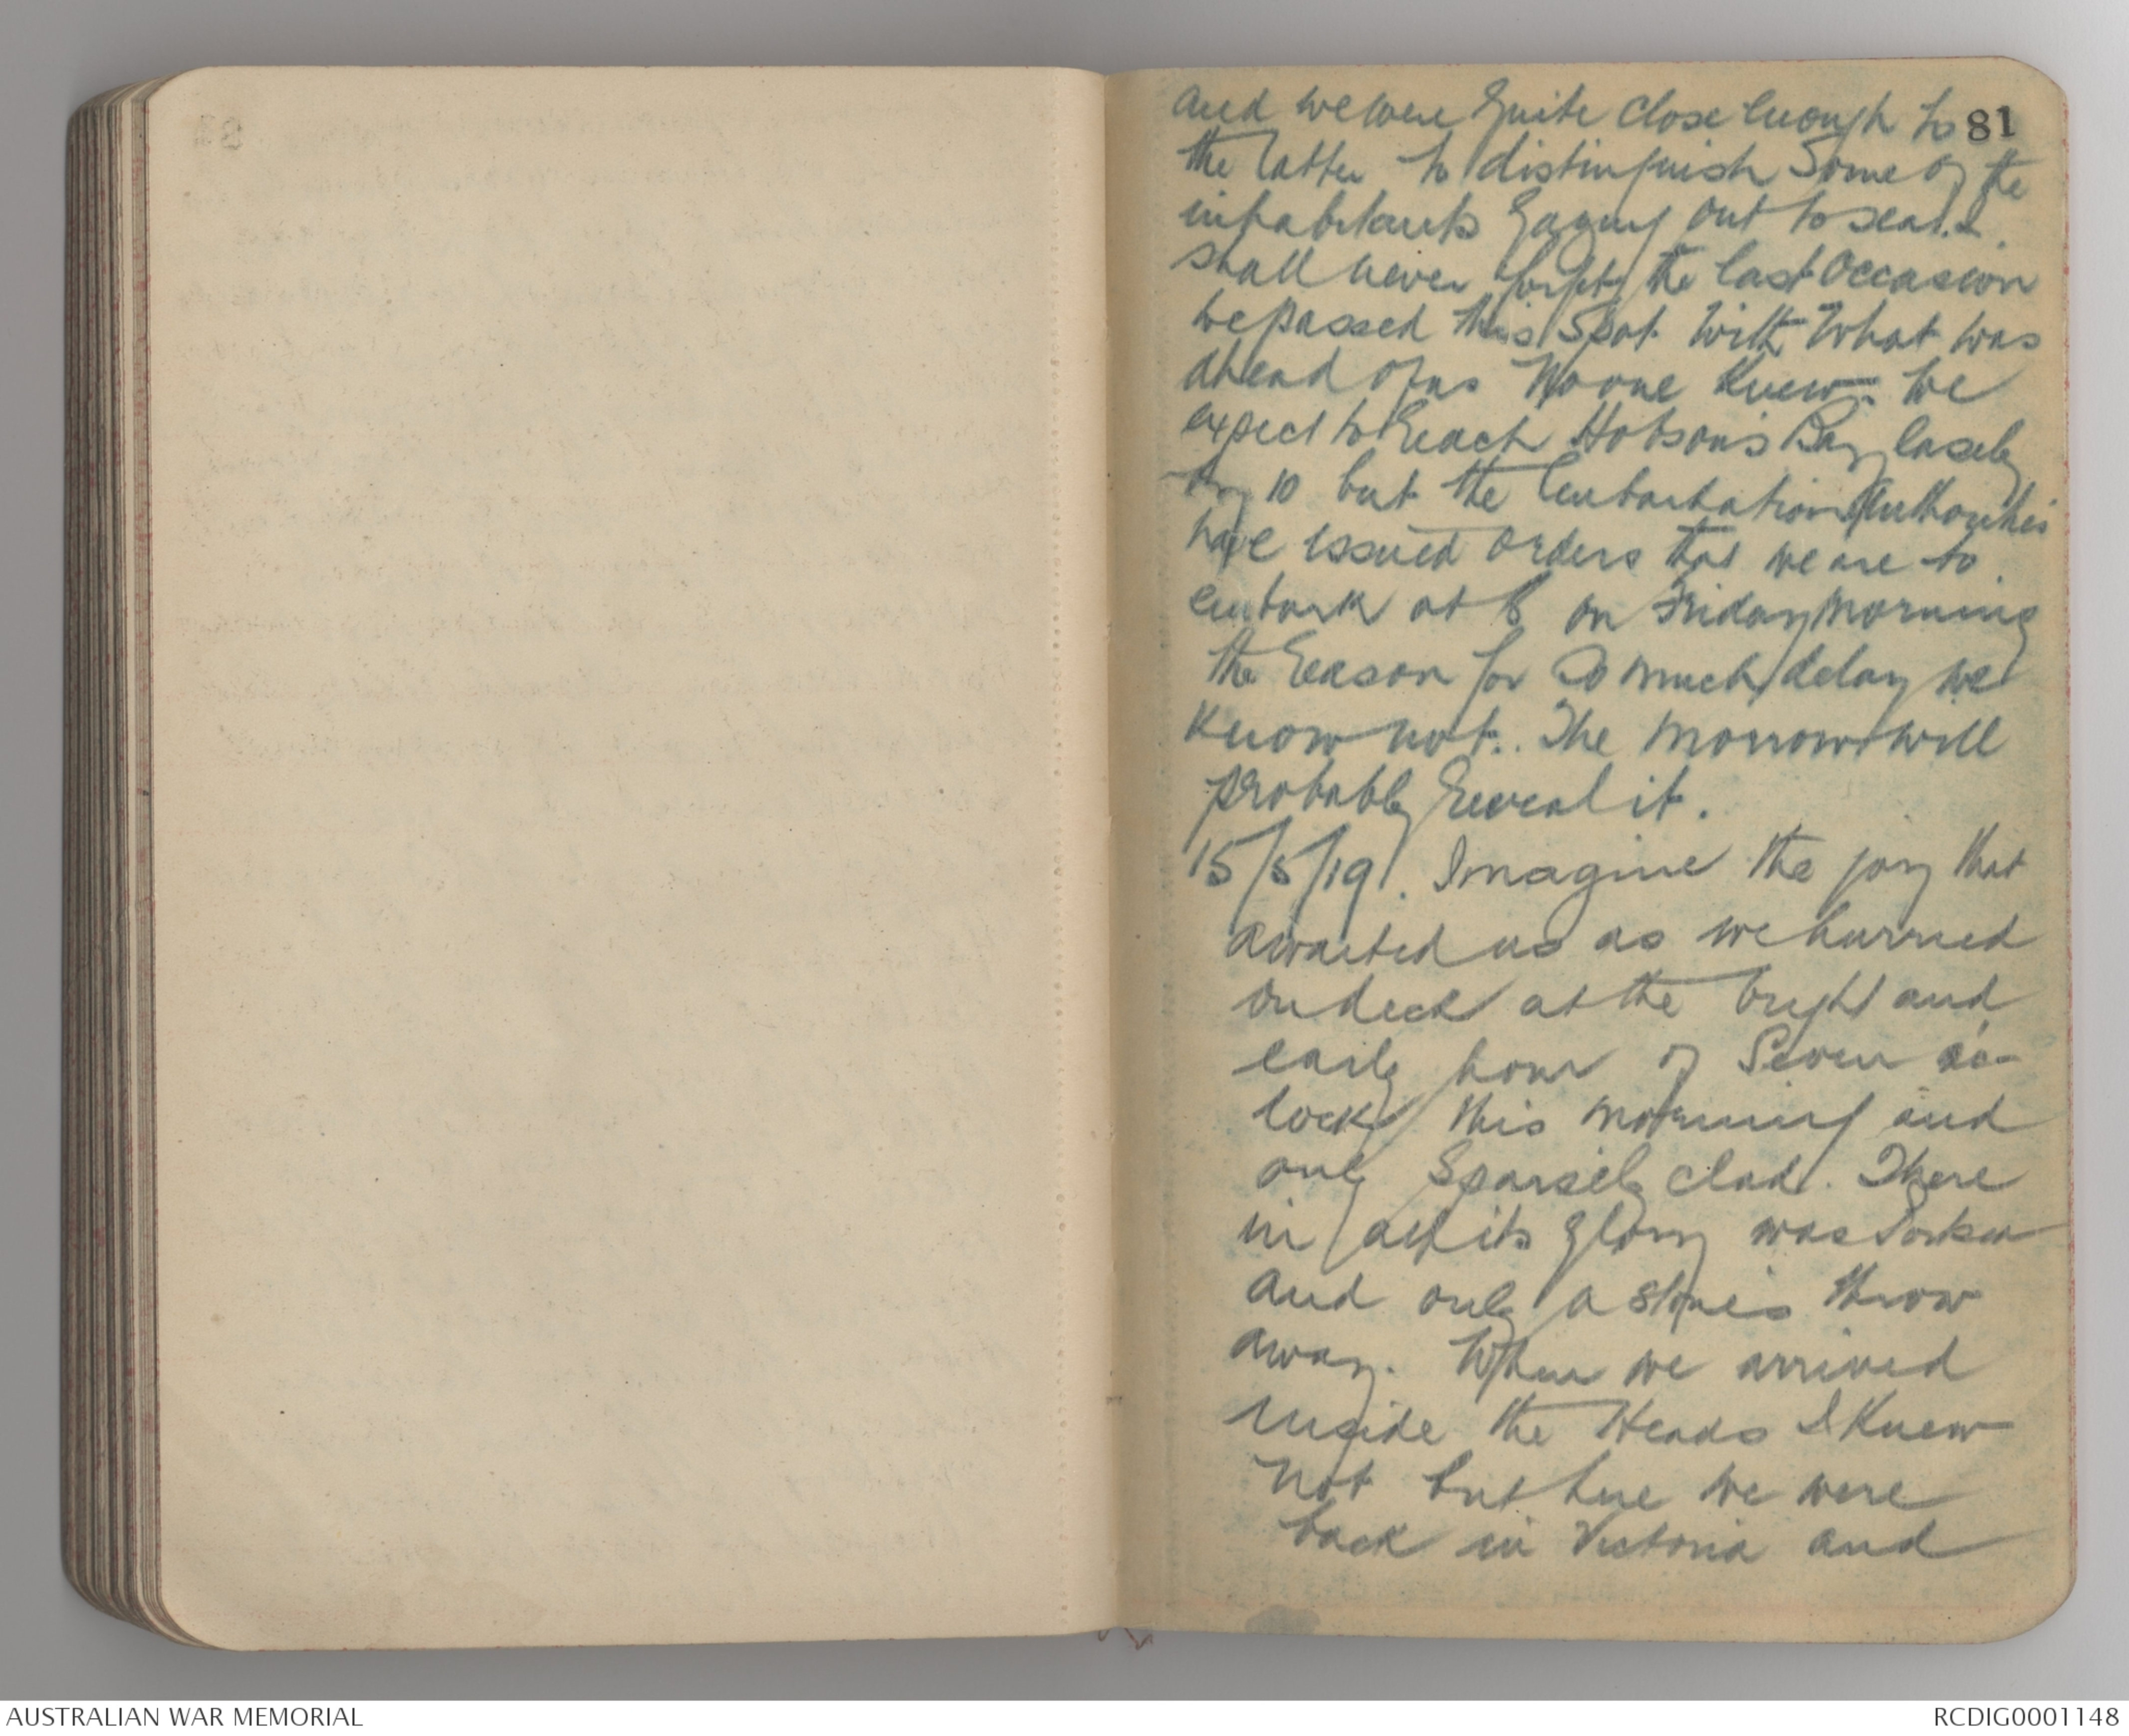 81
and we were quite close enough to
the latter to distinguish some of the
inhabitants gazing out to sea. I
shall never forget the last occasion
we passed this spot. With what was
ahead of us No one knew. We
expect to reach Hobson's Bay easily
by 10 but the Embarkation Authorities
have issued orders that we are to
embark at 8 on Friday morning
the reason for so much delay we
know not. The morrow will
probably reveal it.
15/5/19. Imagine the joy that
awaited us as we hurried
on deck at the bright and
early hour of Seven oc-
lock this morning and
only sparsely clad. There
in all its glory was
and only a stones throw
away. When we arrived
inside the Heads I knew
not but here we were
back in Victoria and
AUSTRALIAN WAR MEMORIAL
RCDIG0001148